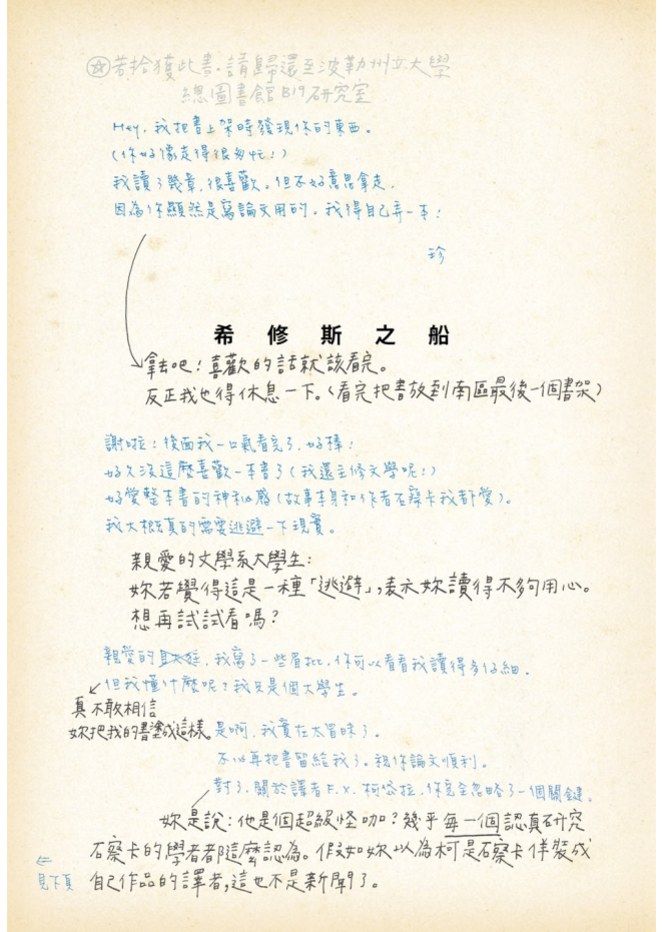 ☆若拾獲此書,請歸還至波勒州立大學
總圖書館B19研究室
Hey,我把書上架時發現你的東西。
(你好像走得很匆忙!)
我讀了幾章,很喜歡。但不好意思拿走,
因為你顯然是寫論文用的。我得自己弄一本!
珍
希修斯之船
拿去吧!喜歡的話就該看完。
反正我也得休息一下。(看完把書放到南區最後一個書架)
謝啦!後面我一口氣看完了,好棒!
好久沒這麼喜歡一本書了(我還主修文學呢!)
好愛整本書的神秘感(故事本身和作者石察卡我都愛)。
我大概真的需要逃避一下現實。
親愛的文學系大學生:
妳若覺得這是一種「逃避」,表示妳讀得不夠用心。
想再試試看嗎?
親愛的,我寫了一些眉批,你可以看看我讀得多仔細。
但我懂什麼呢?我只是個大學生。
真不敢相信
妳把我的書塗成這樣。
是啊,我實在太冒昧了。
不必再把書留給我了。祝你論文順利。
對了,關於譯者F.X.柯岱拉,你完全忽略了一個關鍵。
妳是說:他是個超級怪咖?幾乎每一個認真研究
石察卡的學者都這麼認為。假如妳以為柯是石察卡佯裝成
自己作品的譯者,這也不是新聞了。
←
見下頁